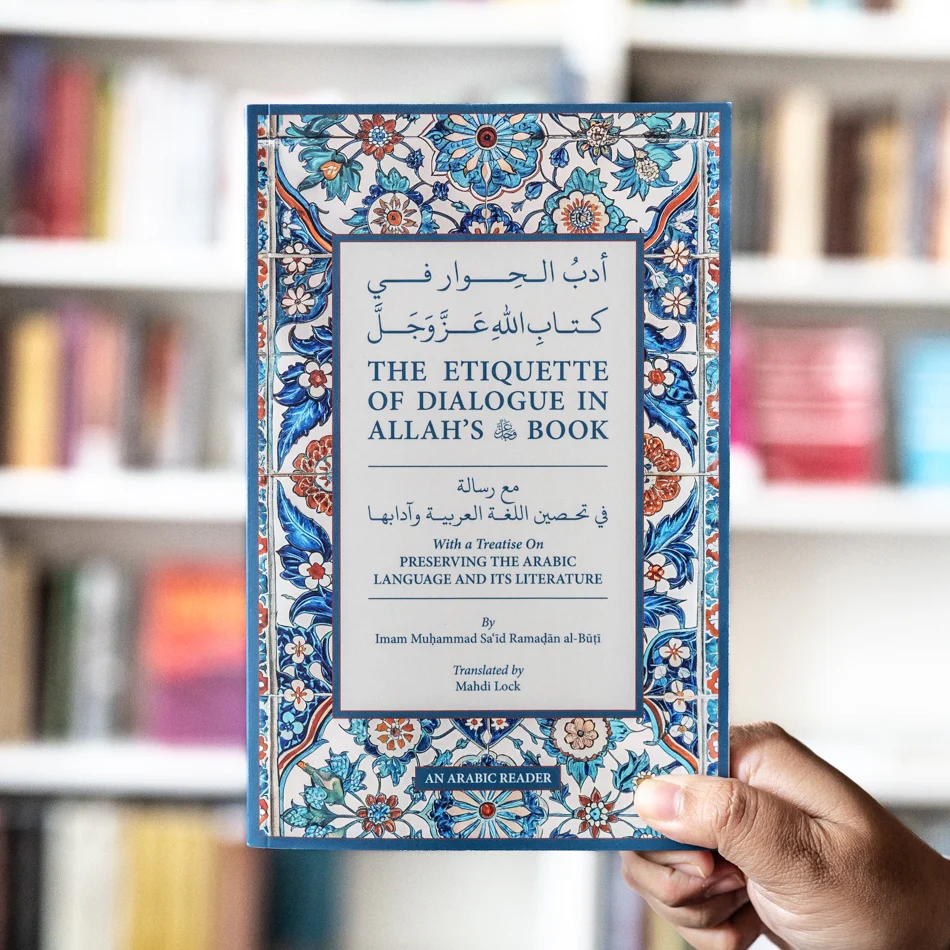 أدبُ الـحِـوار فـي
كـتـابِ اللهِ عَـزَّوَجَـلَّ
THE ETIQUETTE
OF DIALOGUE IN
ALLAH'S ﷻ BOOK
مع رسالة
في تحصين اللغة العربية وآدابها
With a Treatise On
PRESERVING THE ARABIC
LANGUAGE AND ITS LITERATURE
By
Imam Muḥammad Saʿīd Ramaḍān al-Būṭī
Translated by
Mahdi Lock
AN ARABIC READER